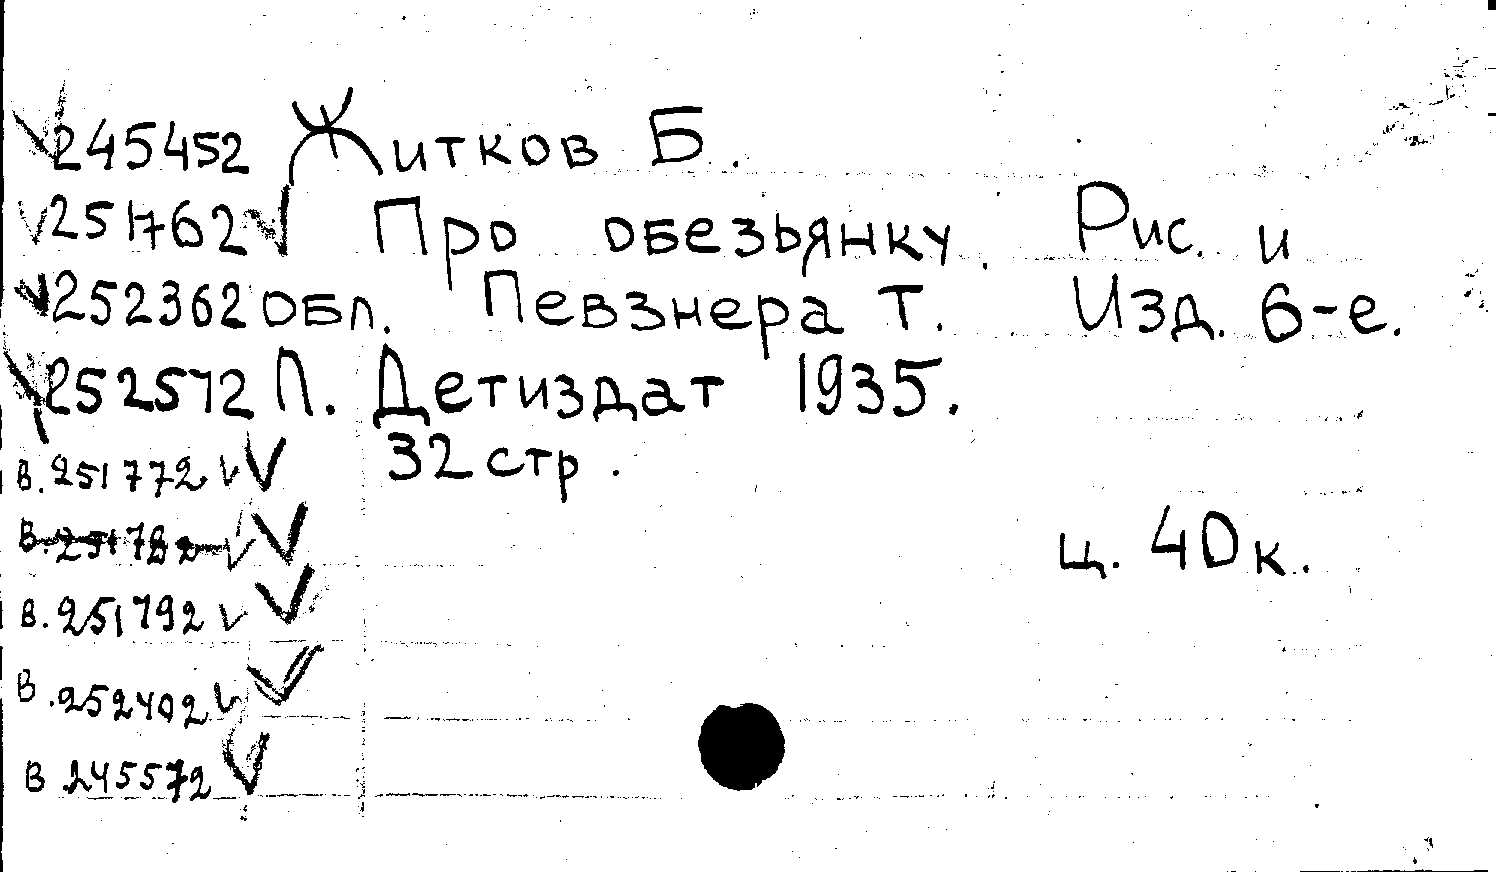 245452 Житков Б.
251762 Про обезьянку. Рис. и
252362 обл. Певзнера Т. Изд. 6-е.
252572 Л. Детиздат 1935.
в. 251772 32 стр.
в. 251782 ц. 40 к.
в. 251792
в. 252402
в 245572